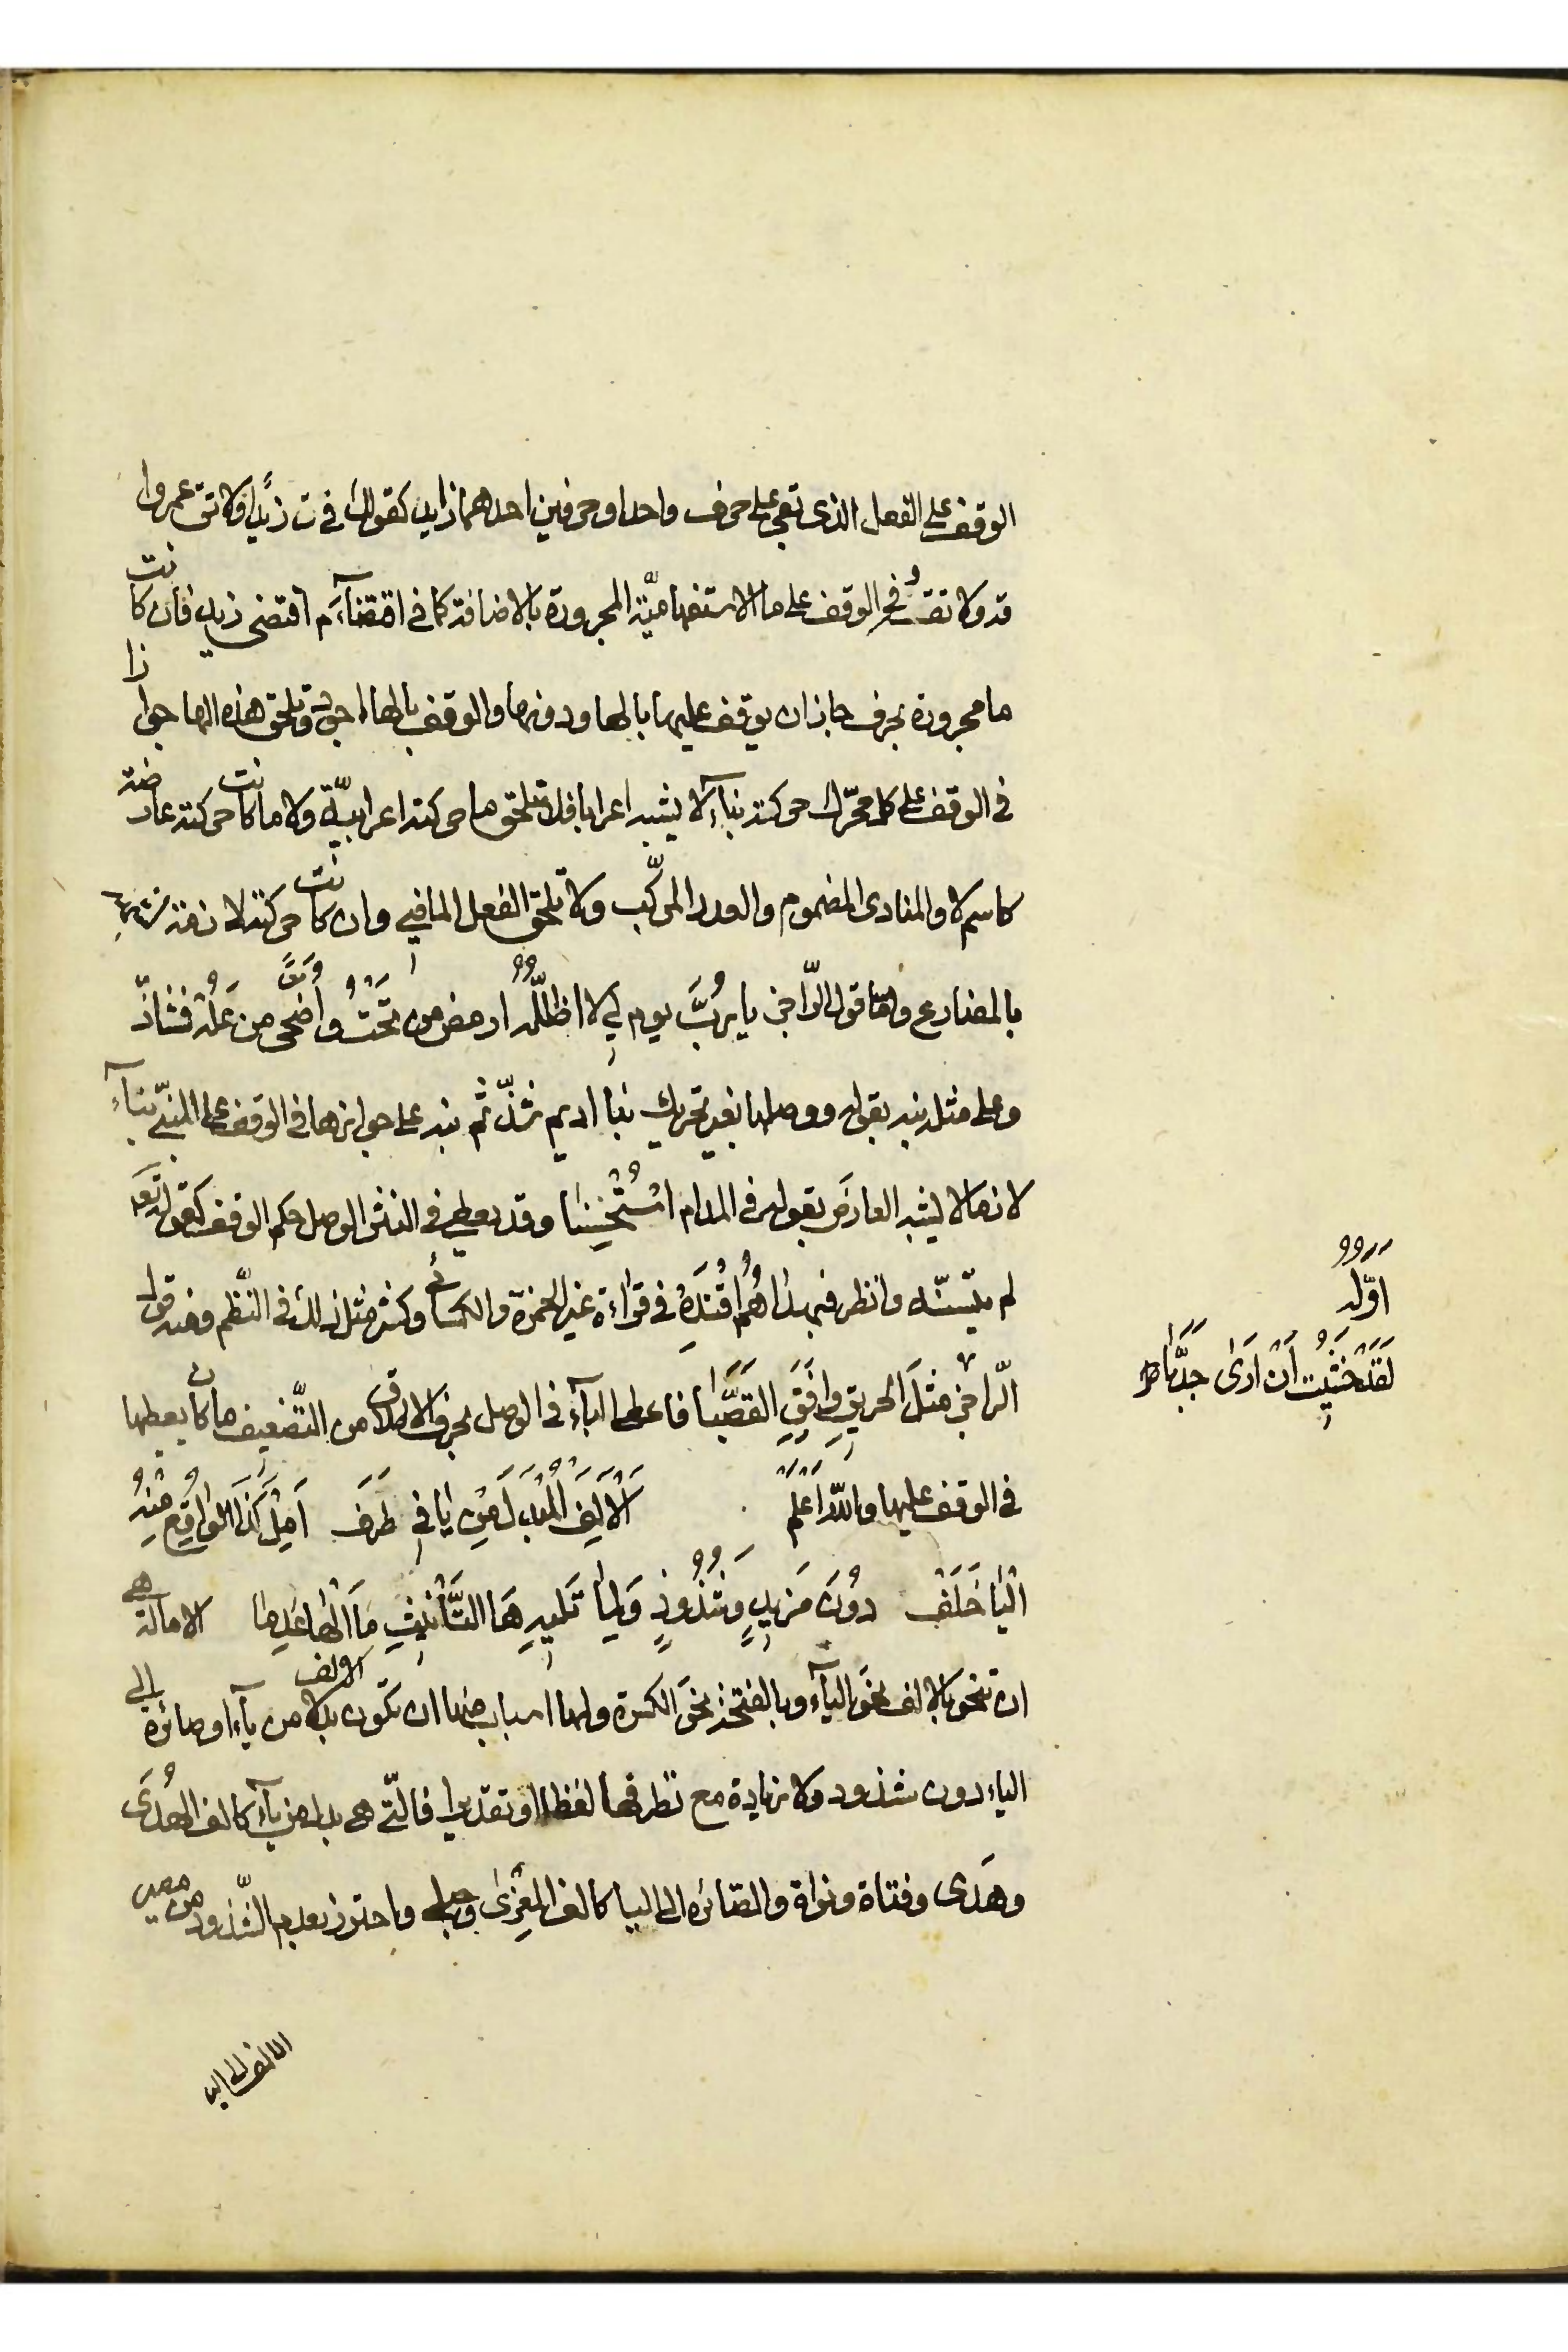 الوقف على الفعل الذى بقى على حرف واحد او حرفين احدهما زايد كقولك فى ق زيدا ولا تق عمروا
قه ولا تقه وفى الوقف على ما الاستفهاميّة المجرورة بالاضافة كما فى اقتضآءَ م اقتضى زيد فان كانت
ما مجرورة بحرف جاز ان يوقف عليها بالهاء ودونها والوقف بالهاء اجود وتلحق هذه الهاء جوازا
فى الوقف على كل محرّك حركته بنآء لا يشبه اعرابا فلا تلحق ما حركته اعرابيّة ولا ما كانت حركته عارضة
كاسم لا والمنادى المضموم والعدد المركّب ولا تلحق الفعل الماضي وان كانت حركته لازمة
بالمضارع وامّا قول الرّاجز يا رُبَّ يوم لي لا اظلّلُه ارمض من تَحْتُ وأَضْحى من عَلُهْ فشاذّ
وعلى مثله نبه بقوله ووصلها بغير تحريك بنا اديم شذّ ثم نبه على جوازها فى الوقف على المبنيّ بنآءً
لازما لا يشبه العارضَ بقوله فى المدام اسْتُحْسِنا وقد يعطى فى النثر الوصل حكم الوقف كقوله تعَ
لم يتسنّه وانظر فبهداهُمُ اقْتَدِهْ فى قراءة غير الحمزة والكسائي وكثر مثل ذلك فى النّظم ومنه قول
الرّاجز مثلَ الحريقِ وافَقَ القَصَبَّا فاعطى البآء فى الوصل بحرف الاطلاق من التّضعيف ما كان يعطيها
فى الوقف عليها واللّه اَعْلَم اَلْاَلِفَ الْمُبْدَلَ مِن يا فى طَرَفْ اَمِلْ كَذَا الْوَاقِع مِنْهُ
الْيَا خَلَفْ دُونَ مَزِيدٍ وَشُذُوذٍ وَلِمَا تَلِيهِ هَا التَّأْنِيثِ مَا الْهَا عَدِمَا الامالة هى
ان تنحو بالالف نحوَ اليآء وبالفتحة نحوَ الكسرة ولها اسباب منها ان تكون الالف بدلا من يآء او صائرة الى
الياء دون شذوذ ولا زيادة مع تطرفها لفظا او تقديرا فالّتى هى بدل من يآء كالف الهُدَى
وهَدى وفتاة ونواة والصّائره الى اليا كالف المِعْزى وحبلى واحترز بعدم الشّذوذ من مصير
اوّله
لَقَدْ خَشِيتُ اَنْ اَرَى جَدَبَّا
الالف الى اليا